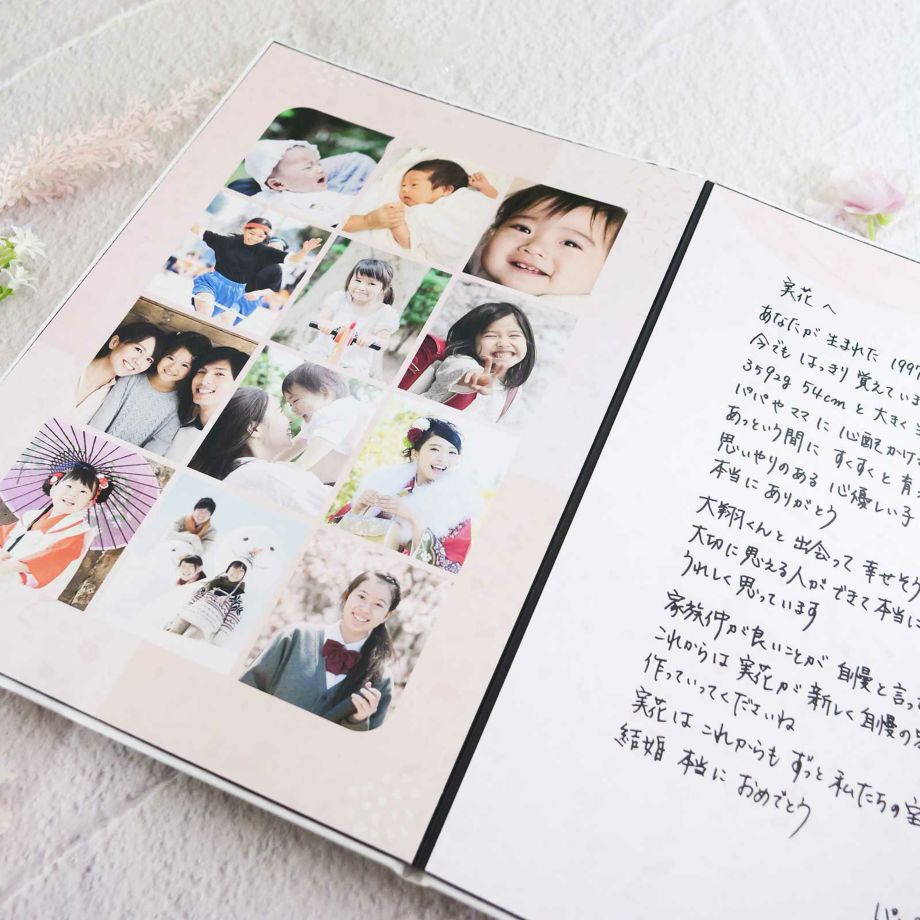 実花へ
あなたが生まれた 1997
今でも はっきり 覚えていま
3592g 54cm と 大きく
パパやママに 心配かけ
あっという間に すくすくと 育
思いやりのある 心優しい子
本当に ありがとう
大翔くんと 出会って 幸せそう
大切に 思える人が できて 本当に
うれしく 思っています
家族仲が 良いことが 自慢と 言っ
これからは 実花が 新しく 自慢の
作っていってくださいね
実花は これからも ずっと 私たちの宝
結婚 本当に おめでとう
パ